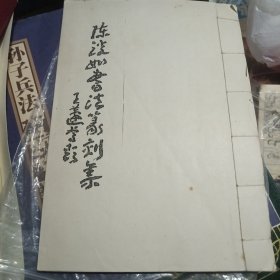 陈浚如书法篆刻集
王蘧常题
孙子兵法